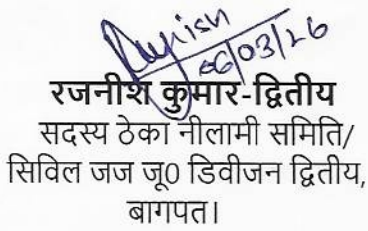 Rajnish
06/03/26
रजनीश कुमार-द्वितीय
सदस्य ठेका नीलामी समिति/
सिविल जज जू0 डिवीजन द्वितीय,
बागपत।